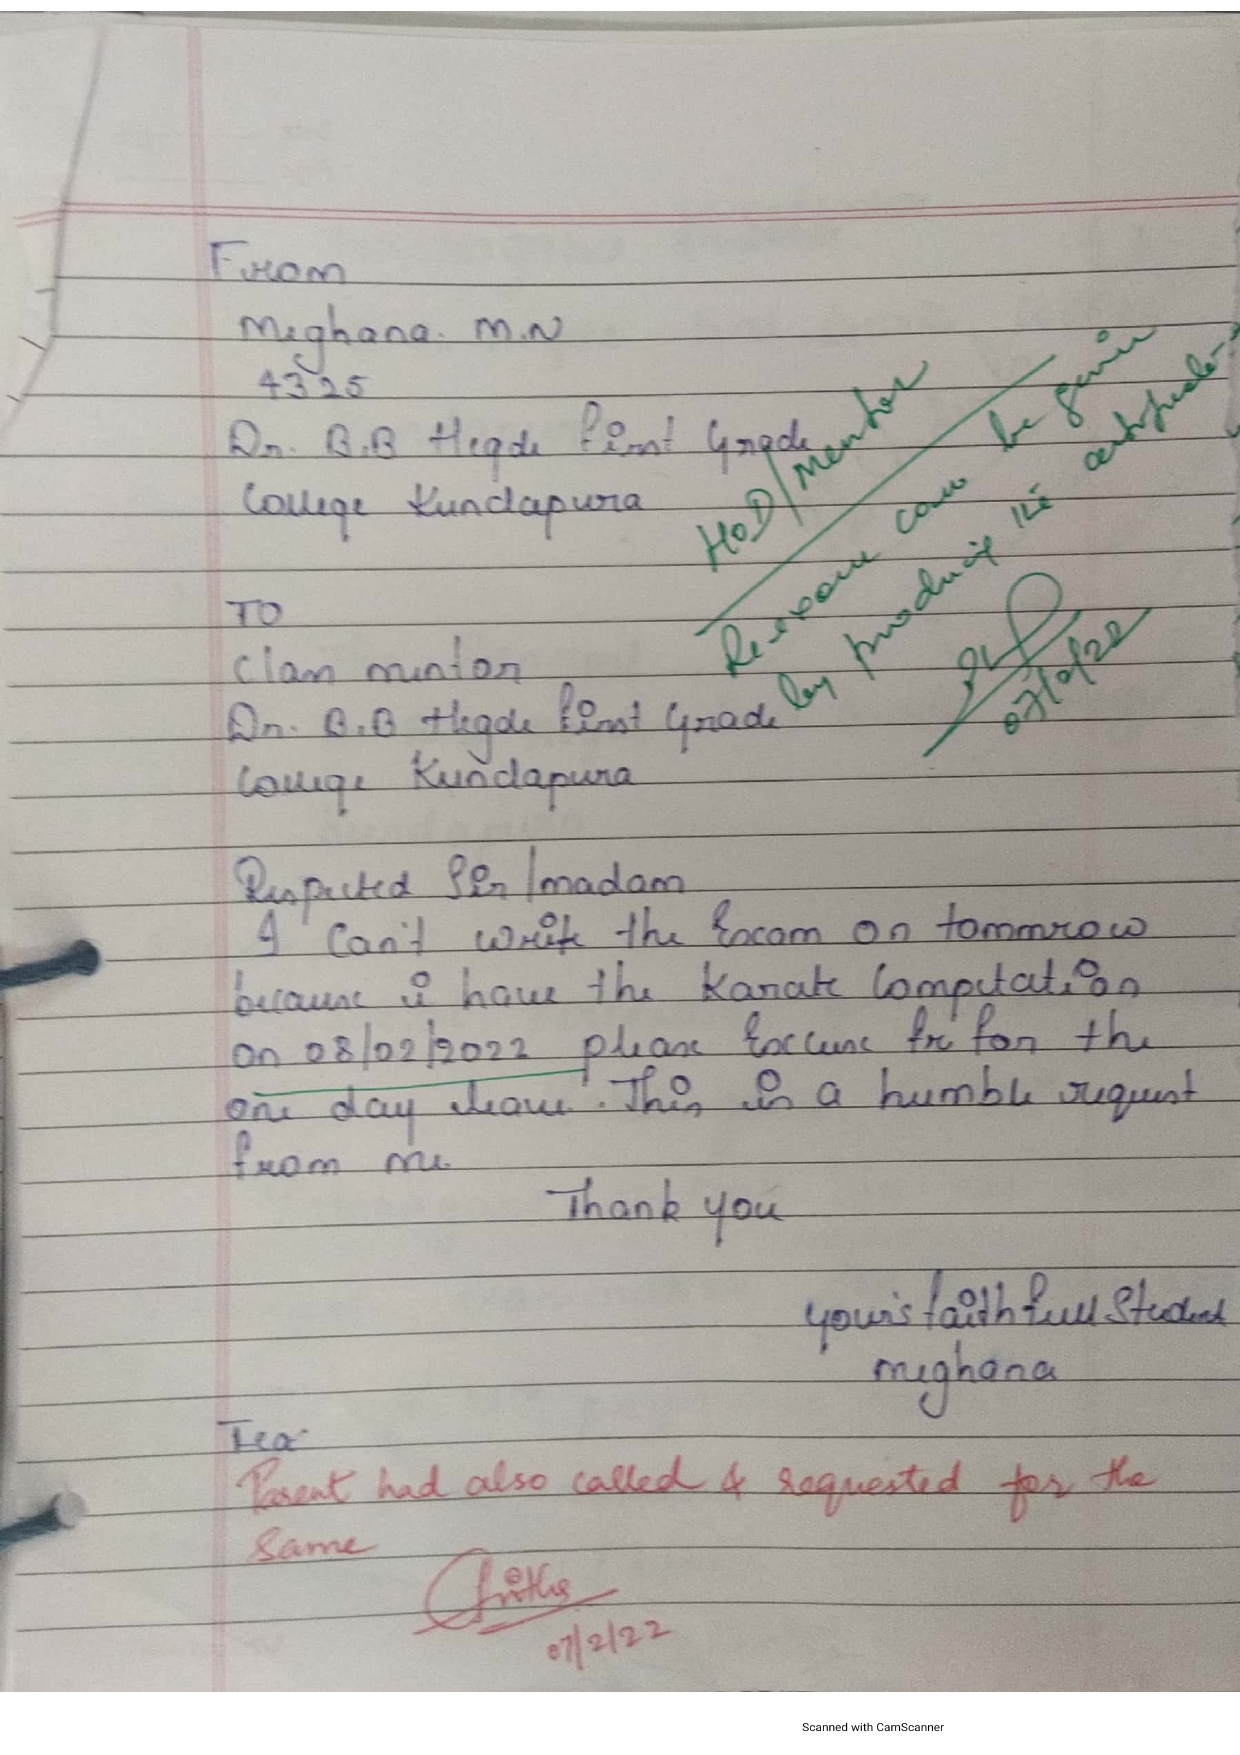 From
Meghana. M.N
4325
Dr. B.B Hegde First Grade
College Kundapura
HOD/Mentor
Re-exam can be given
by producing the certificate
07/2/22
TO
Clam mentor
Dr. B.B Hegde First Grade
College Kundapura
Respected Sir/madam
I Can't write the Exam on tommrow
because i have the Karate Competation
on 08/02/2022 please Excuse for the
one day leave. This is a humble request
from me.
Thank you
your's faithfull Student
meghana
Tea
Parent had also called & requested for the
same
07/2/22
Scanned with CamScanner